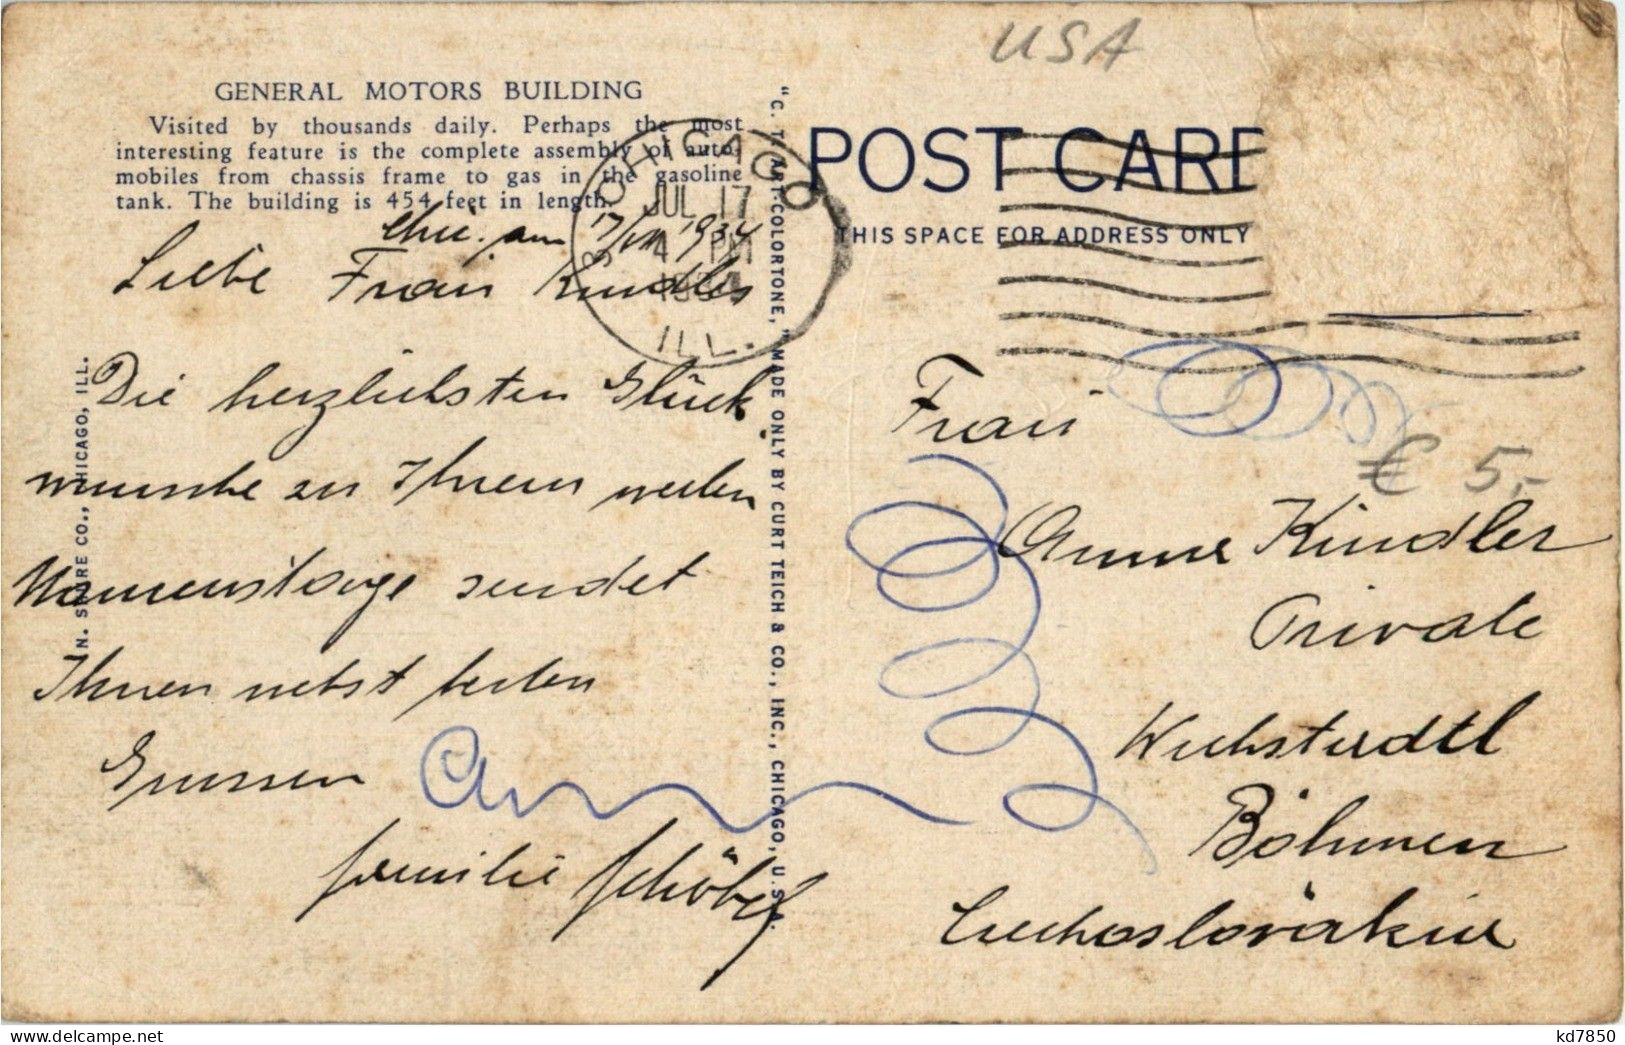 USA
GENERAL MOTORS BUILDING
Visited by thousands daily. Perhaps the most
interesting feature is the complete assembly of auto-
mobiles from chassis frame to gas in the gasoline
tank. The building is 454 feet in length.
CHICAGO
JUL 17
4 PM
1934
ILL.
POST CARD
THIS SPACE FOR ADDRESS ONLY
"C. T. ART-COLORTONE," MADE ONLY BY CURT TEICH & CO., INC., CHICAGO, U.S.A.
CO., CHICAGO, ILL.
Chic. am 17/VII 1934
Liebe Frau Kindler
Die herzlichsten Glück
wünsche zu Ihrem werten
Namenstage sendet
Ihnen nebst besten
Grüssen
Familie Schöbel
Frau
€ 5,-
Anna Kindler
Private
Böhmen
kd7850